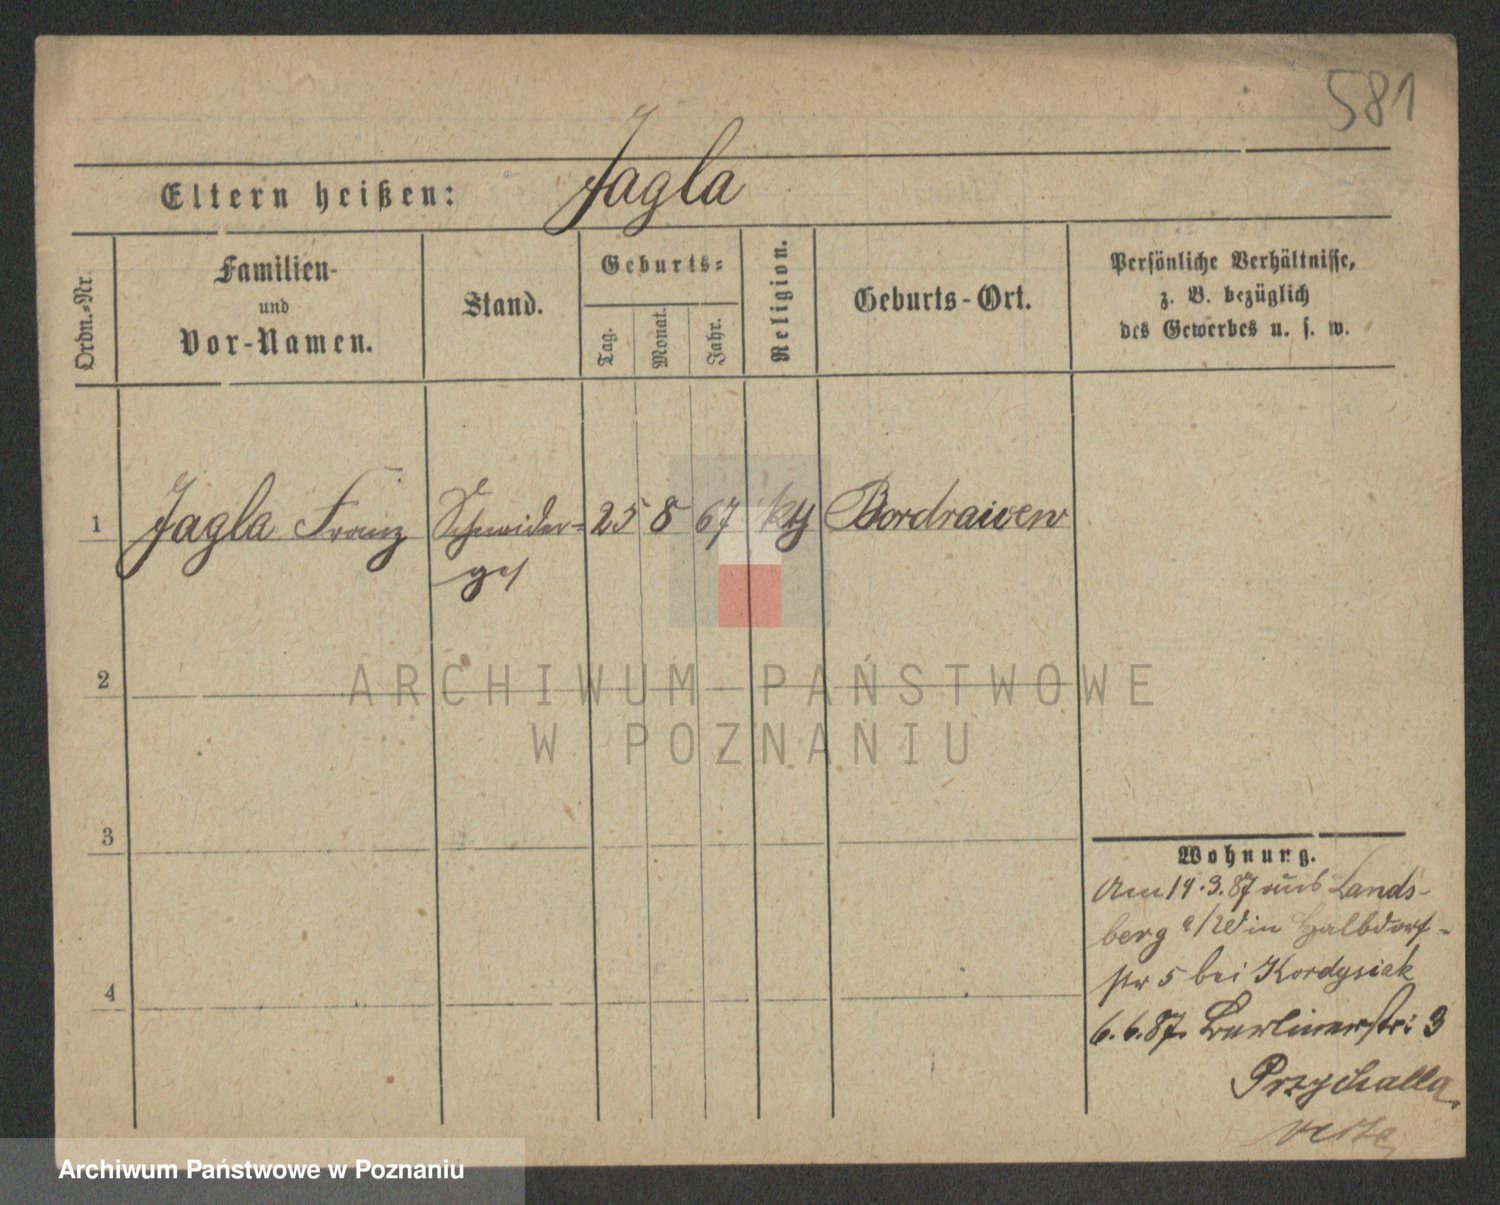 581
Eltern heißen: Jagla
Ordn.-Nr.
Familien-
und
Vor-Namen.
Stand.
Geburts-
Tag.
Monat.
Jahr.
Religion.
Geburts-Ort.
Persönliche Verhältnisse,
z. B. bezüglich
des Gewerbes u. s. w.
1 Jagla Franz Schneider- 25 8 67 kth Bordraiven
ges
ARCHIWUM PAŃSTWOWE
W POZNANIU
2
3
4
Wohnung.
Am 19.3.87 aus Lands-
berg a/W in Halbdorf-
str 5 bei Kordysiak
6.6.87. Berlinerstr: 3
Przychalla
verte
Archiwum Państwowe w Poznaniu